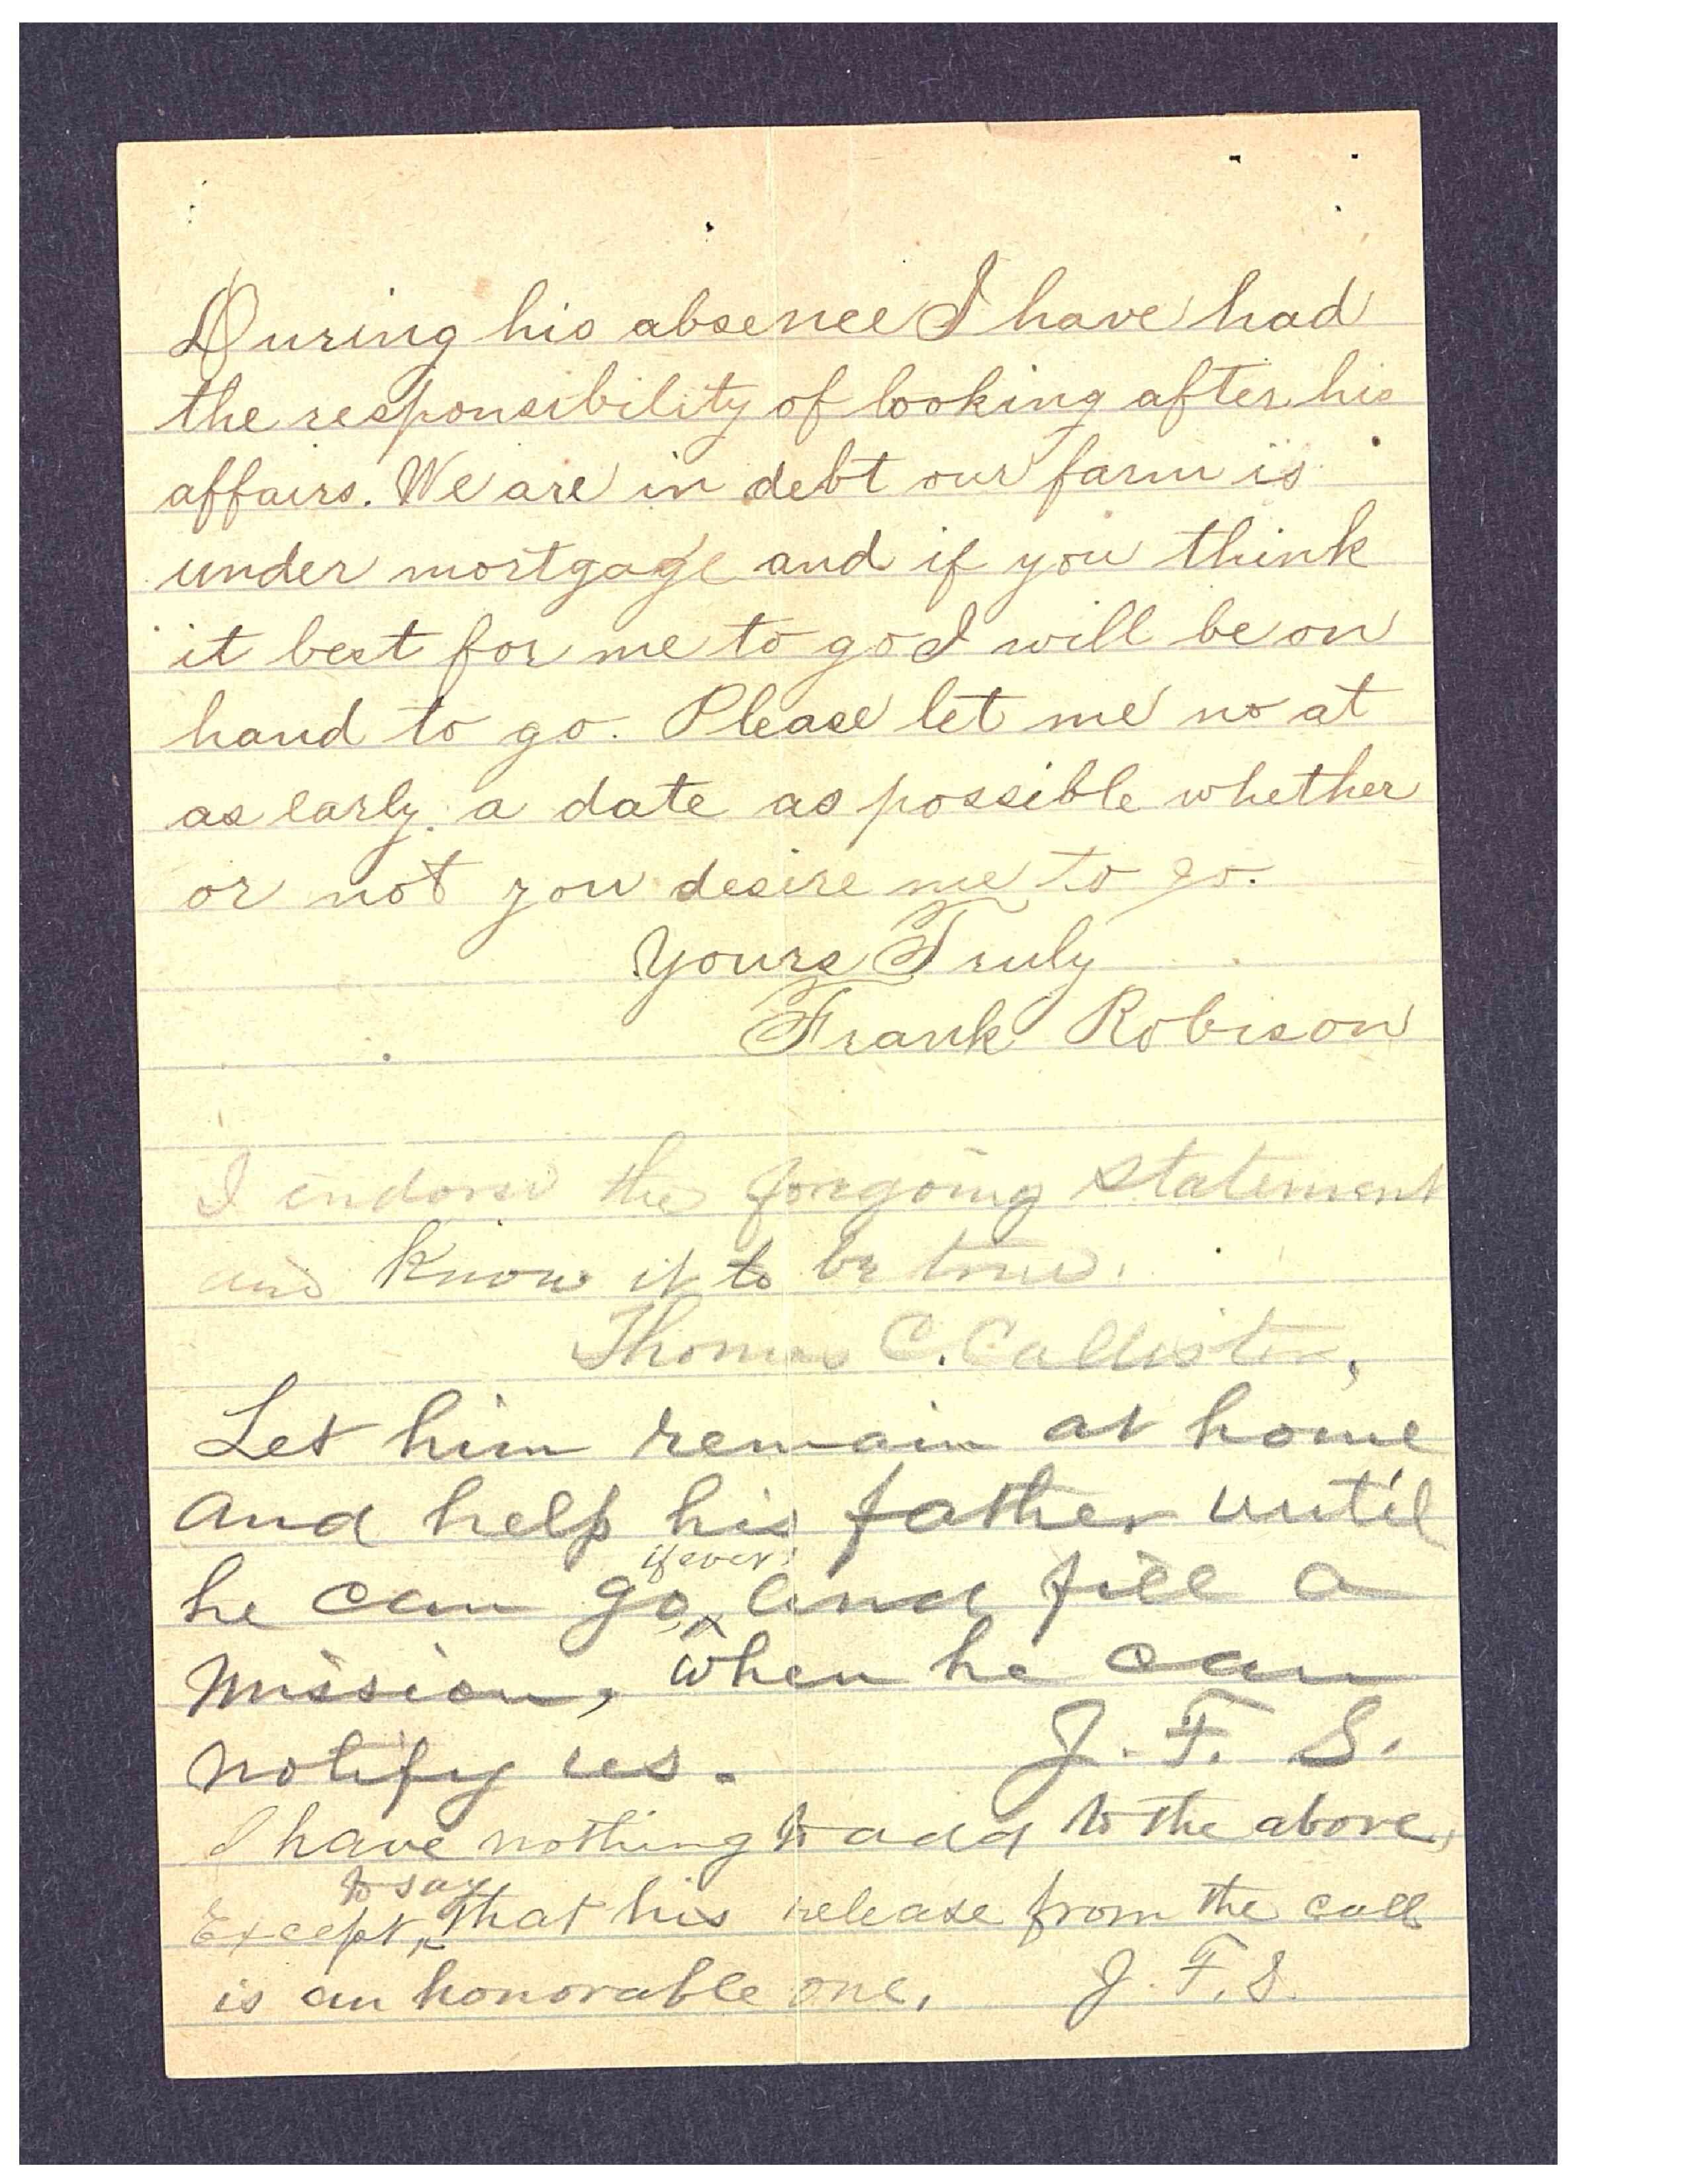 During his absence I have had
the responsibility of looking after his
affairs. We are in debt our farm is
under mortgage and if you think
it best for me to go I will be on
hand to go. Please let me no at
as early a date as possible whether
or not you desire me to go.
Yours Truly
Frank Robison
I endorse the foregoing statement
and know it to be true.
Thomas C. Callister,
Let him remain at home
and help his father until
he can go, if ever, and fill a
mission, when he can
notify us. J. F. S.
I have nothing to add to the above,
Except, to say that his release from the call
is an honorable one. J. F. S.